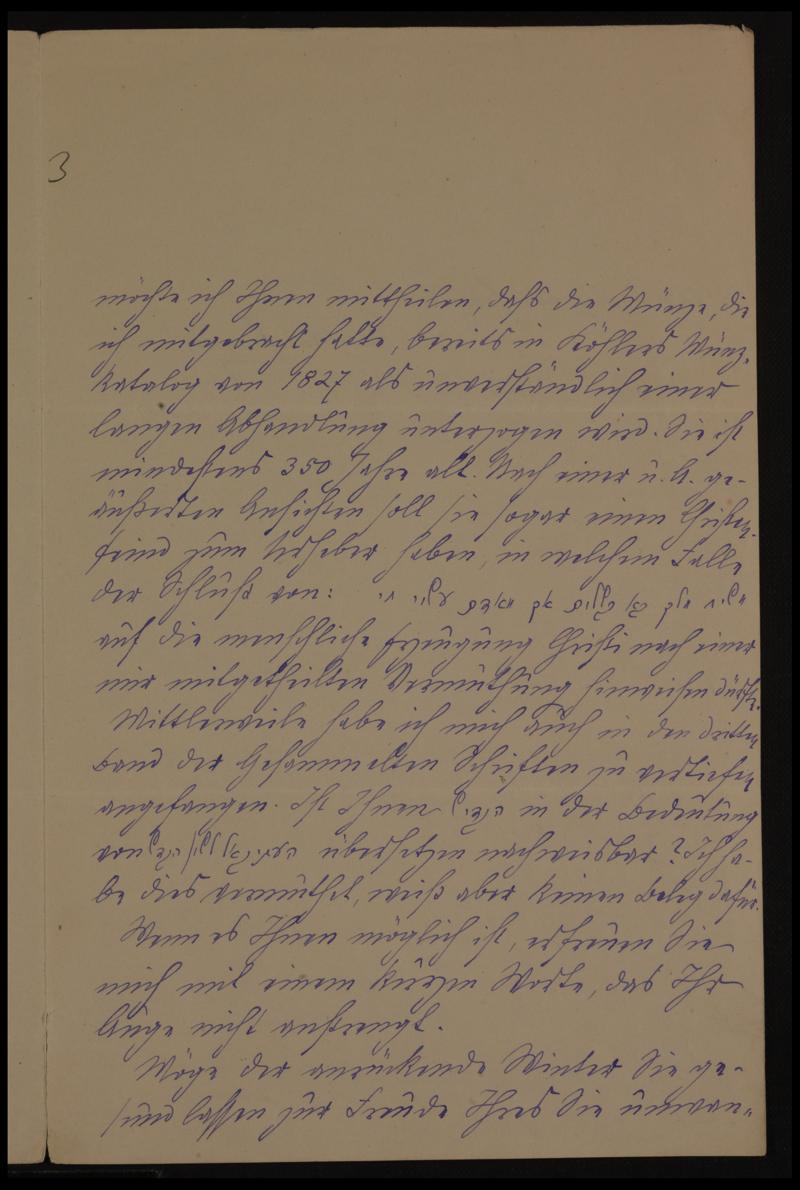 3
möchte ich Ihnen mittheilen, daß die Münze, die
ich mitgebracht hatte, bereits in Köhlers Münz-
katalog von 1827 als unverständlich einer
langen Abhandlung unterzogen wird. Sie ist
mindestens 350 Jahre alt. Nach einer u. A. ge-
äußerten Ansichten soll sie sogar einen Christen-
feind zum Urheber haben, in welchem Falle
der Schluß von:
auf die menschliche Erzeugung Christi nach einer
mir mitgetheilten Vermuthung hinweisen dürfte.
Mittlerweile habe ich mich auch in den dritten
Band der Gesammelten Schriften zu vertiefen
angefangen. Ist Ihnen הגדיל in der Bedeutung
von übersetzen nachweisbar? Ich ha-
be dies vermuthet, weiß aber keinen Beleg dafür.
Wenn es Ihnen möglich ist, erfreuen Sie
mich mit einem kurzen Worte, das Ihr
Auge nicht anstrengt.
Möge der anrückende Winter Sie ge-
sund lassen zur Freude Ihres Sie unwan-